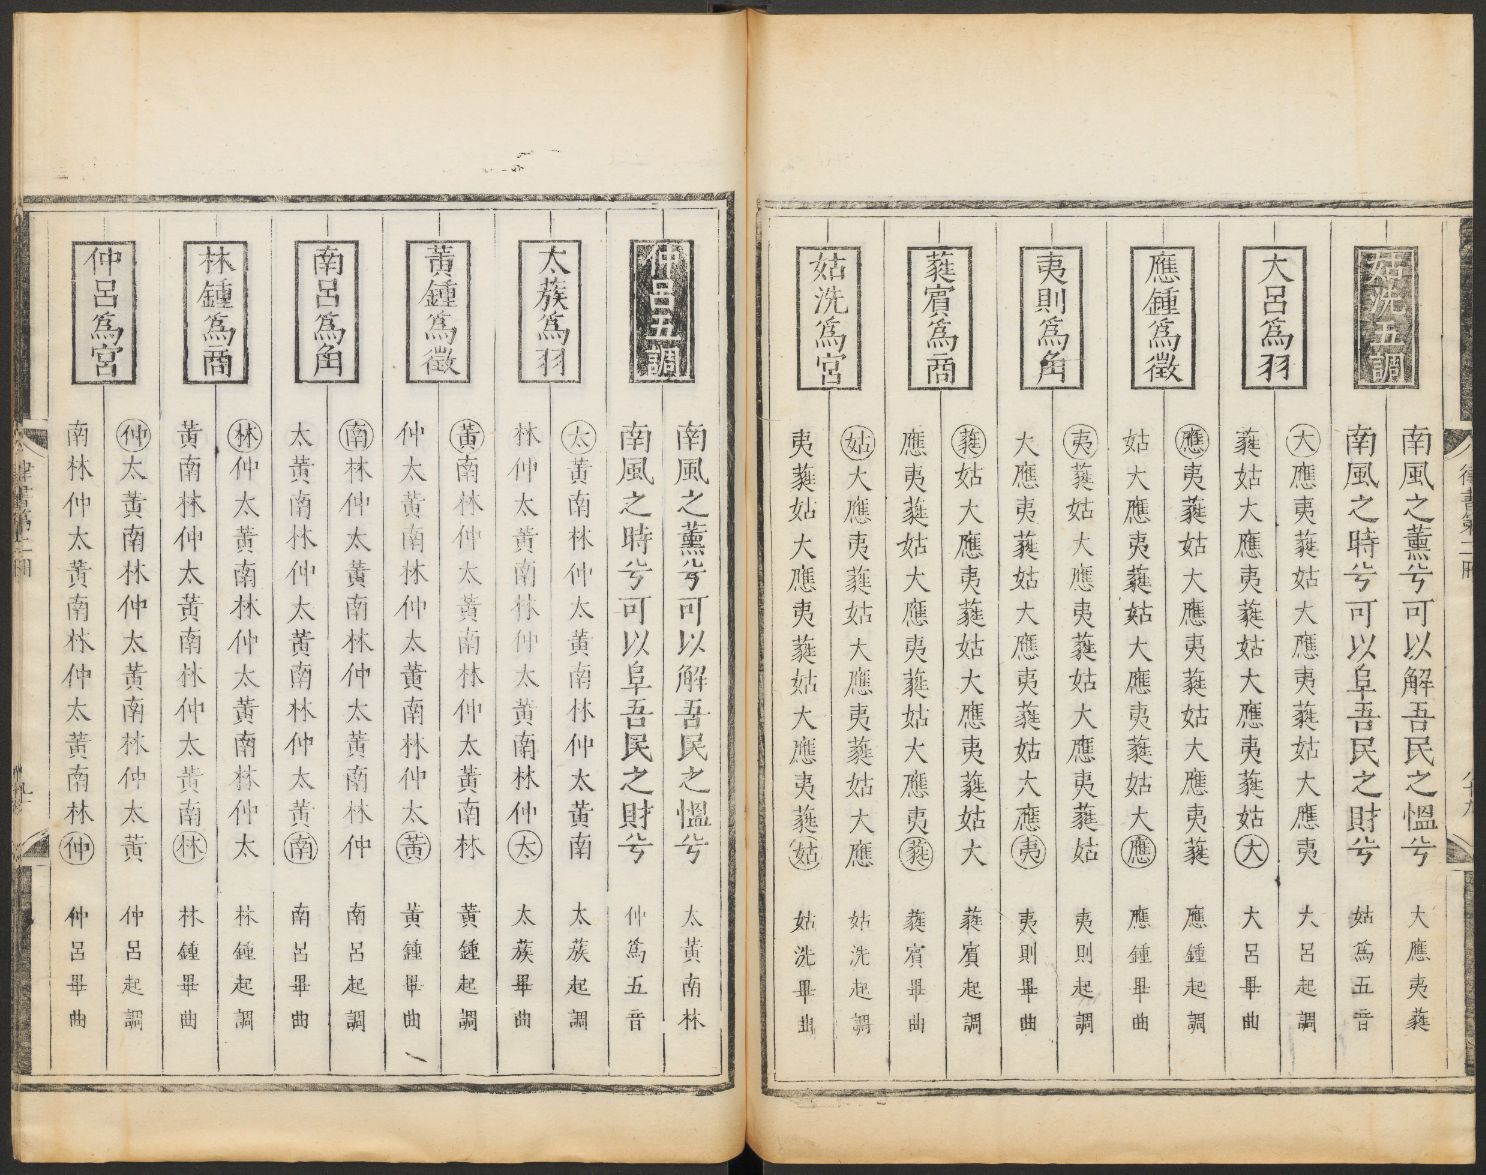 律書第二冊
八十九
姑洗五調
南風之薰兮可以解吾民之慍兮 大應夷蕤
南風之時兮可以阜吾民之財兮 姑爲五音
大呂爲羽
大應夷蕤姑大應夷蕤姑大應夷 大呂起調
蕤姑大應夷蕤姑大應夷蕤姑大 大呂畢曲
應鍾爲徵
應夷蕤姑大應夷蕤姑大應夷蕤 應鍾起調
姑大應夷蕤姑大應夷蕤姑大應 應鍾畢曲
夷則爲角
夷蕤姑大應夷蕤姑大應夷蕤姑 夷則起調
大應夷蕤姑大應夷蕤姑大應夷 夷則畢曲
蕤賓爲商
蕤姑大應夷蕤姑大應夷蕤姑大 蕤賓起調
應夷蕤姑大應夷蕤姑大應夷蕤 蕤賓畢曲
姑洗爲宮
姑大應夷蕤姑大應夷蕤姑大應 姑洗起調
夷蕤姑大應夷蕤姑大應夷蕤姑 姑洗畢曲
仲呂五調
南風之薰兮可以解吾民之慍兮 太黃南林
南風之時兮可以阜吾民之財兮 仲爲五音
太蔟爲羽
太黃南林仲太黃南林仲太黃南 太蔟起調
林仲太黃南林仲太黃南林仲太 太蔟畢曲
黃鍾爲徵
黃南林仲太黃南林仲太黃南林 黃鍾起調
仲太黃南林仲太黃南林仲太黃 黃鍾畢曲
南呂爲角
南林仲太黃南林仲太黃南林仲 南呂起調
太黃南林仲太黃南林仲太黃南 南呂畢曲
林鍾爲商
林仲太黃南林仲太黃南林仲太 林鍾起調
黃南林仲太黃南林仲太黃南林 林鍾畢曲
仲呂爲宮
仲太黃南林仲太黃南林仲太黃 仲呂起調
南林仲太黃南林仲太黃南林仲 仲呂畢曲
律書第二冊